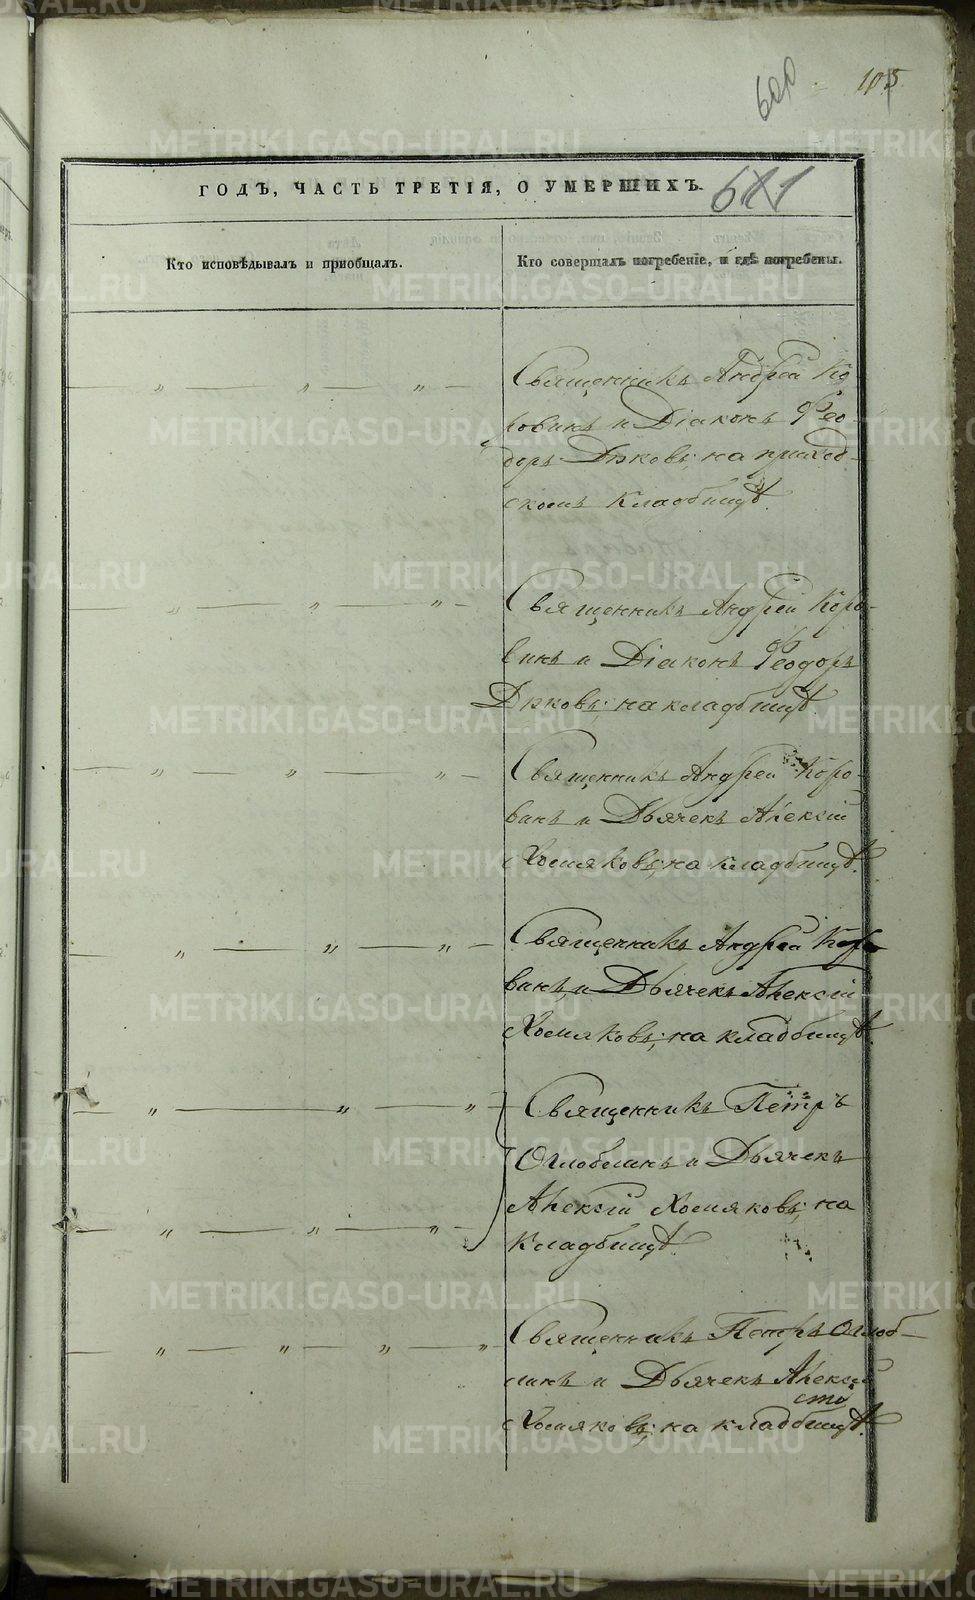 600 105
ГОДЪ, ЧАСТЬ ТРЕТІЯ, О УМЕРШИХЪ.
Кто исповѣдывалъ и пріобщалъ.
Кто совершалъ погребеніе, и гдѣ погребены.
Священникъ Андрей Ко
ровинъ и Діаконъ Ѳео-
доръ Дюковъ; на приход-
скомъ кладбищѣ.
Священникъ Андрей Коро-
винъ и Діаконъ Ѳеодоръ
Дюковъ; на кладбищѣ.
Священникъ Андрей Коро-
винъ и Дьячекъ Алексій
Хомяковъ; на кладбищѣ.
Священникъ Андрей Коро
винъ и Дьячекъ Алексій
Хомяковъ; на кладбищѣ.
Священникъ Петръ
Оглоблинъ и Дьячекъ
Алексій Хомяковъ; на
кладбищѣ.
Священникъ Петръ Оглоб-
линъ и Дьячекъ Алексій
Хомяковъ; на кладбищѣ.
METRIKI.GASO-URAL.RU